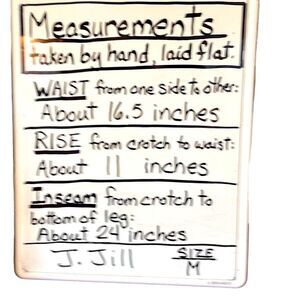 Measurements
taken by hand, laid flat.
WAIST from one side to other:
About 16.5 inches
RISE from crotch to waist:
About 11 inches
Inseam from crotch to
bottom of leg:
About 24 inches
J. Jill SIZE
M